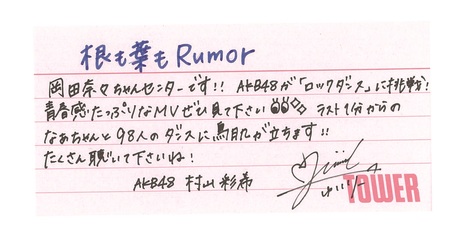 根も葉もRumor
岡田奈々ちゃんセンターです!! AKB48が「ロックダンス」に挑戦!
青春感たっぷりなMVぜひ見て下さい
ラスト1分からの
なぁちゃんと98人のダンスに鳥肌が立ちます!!
たくさん聴いて下さいね!
AKB48 村山彩希
ゆいりー
TOWER